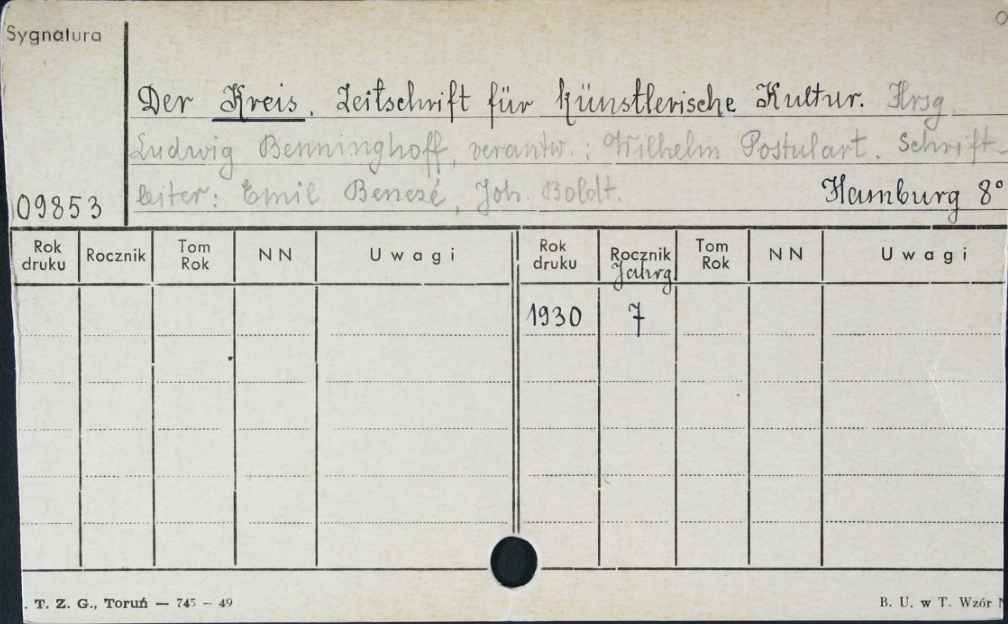 Sygnatura
Der Kreis. Zeitschrift für künstlerische Kultur. Hrsg.
Ludwig Benninghoff, verantw.: Wilhelm Postulart. Schrift-
leiter: Emil Benezé, Joh. Boldt. Hamburg 8°
09853
Rok druku Rocznik Tom Rok NN Uwagi Rok druku Rocznik Jahrg Tom Rok NN Uwagi
1930 7
. T. Z. G., Toruń — 745 — 49 B. U. w T. Wzór